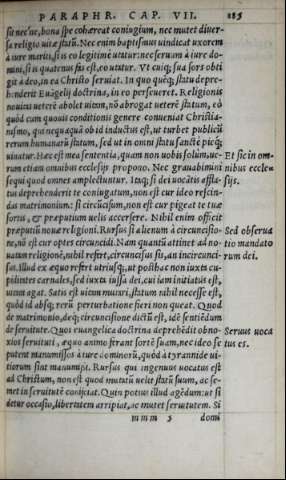 PARAPHR. CAP. VII. 285
sit nec ne, bona spe cohæreat coniugium, nec mutet diuer-
sa religio uitæ statũ. Nec enim baptismus uindicat uxorem
à iure mariti, si is eo legitime utatur: nec seruum à iure do-
mini, si is quatenus fas est, eo utatur. Vt cuiq; sua sors obti
git à deo, in ea Christo seruiat. In quo quẽq; statu depre-
henderit Euãgelij doctrina, in eo perseueret. Religionis
nouitas uetere abolet uitam, nõ abrogat ueterẽ statum, eò
quòd cum quouis conditionis genere conueniat Christia-
nismo, qui nequaquã ob id inductus est, ut turbet publicũ
rerum humanarũ statum, sed ut in omni statu sanctè picq;
uiuatur. Hæc est mea sententia, quam non uobis solùm, ue-
rum etiam omnibus ecclesijs propono. Nec grauabimini
sequi quod omnes amplectuntur. Itaq; si dei uocãtis affla-
tus deprehenderit te coniugatum, non est cur ideo rescin-
das matrimonium: si circũcisum, non est cur pigeat te tuæ
sortis, & præputium uelis accersere. Nihil enim officit
præputiũ nouæ religioni. Rursus si alienum à circuncisio-
ne, nõ est cur optes circuncidi. Nam quantũ attinet ad no-
uatum religionẽ, nihil refert, circuncisus sis, an incircunci-
sus. Illud ex æquo refert utriusq;, ut posthac non iuxta cu-
piditates carnales, sed iuxta iussa dei, cui iam initiatus est,
uitam agat. Satis est uitam mutari, statum nihil necesse est,
quòd id absq; rerũ perturbatione fieri non queat. Quod
de matrimonio, deq; circuncisione dictũ est, idẽ sentiẽdum
de seruitute. Quos euangelica doctrina deprehẽdit obno-
xios seruituti, æquo animo ferant sortẽ suam, nec ideo se
putent manumissos à iure dominorũ, quòd à tyrannide ui-
tiorum sint manumissi. Rursus qui ingenuus uocatus est
ad Christum, non est quod mutatũ uelit statũ suum, ac se-
met in seruitutẽ conijciat. Quin potius illud agẽdum: ut si
detur occasio, libertatem arripiat, ac mutet seruitutem. Si
mmm 3 domi
Et sic in om-
nibus eccle-
sijs.
Sed obserua
tio mandato
rum dei.
Seruus uoca
tus es.